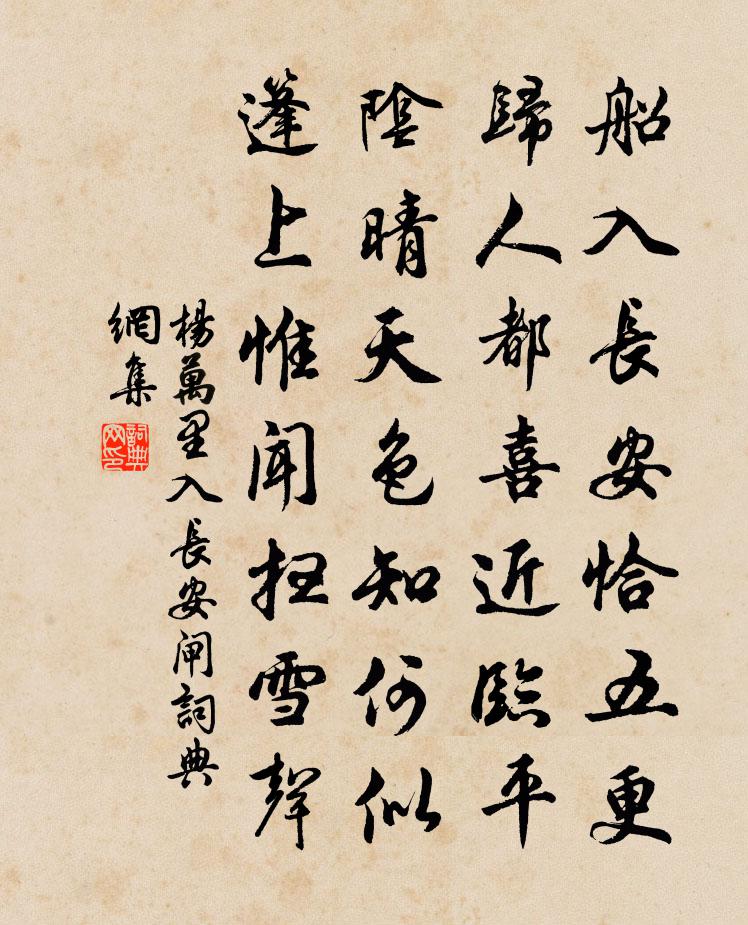 船入長安恰五更
歸人都喜近臨平
陰晴天色知何似
篷上惟聞掃雪聲
楊萬里入長安闸詞典
網集
詞典
网印